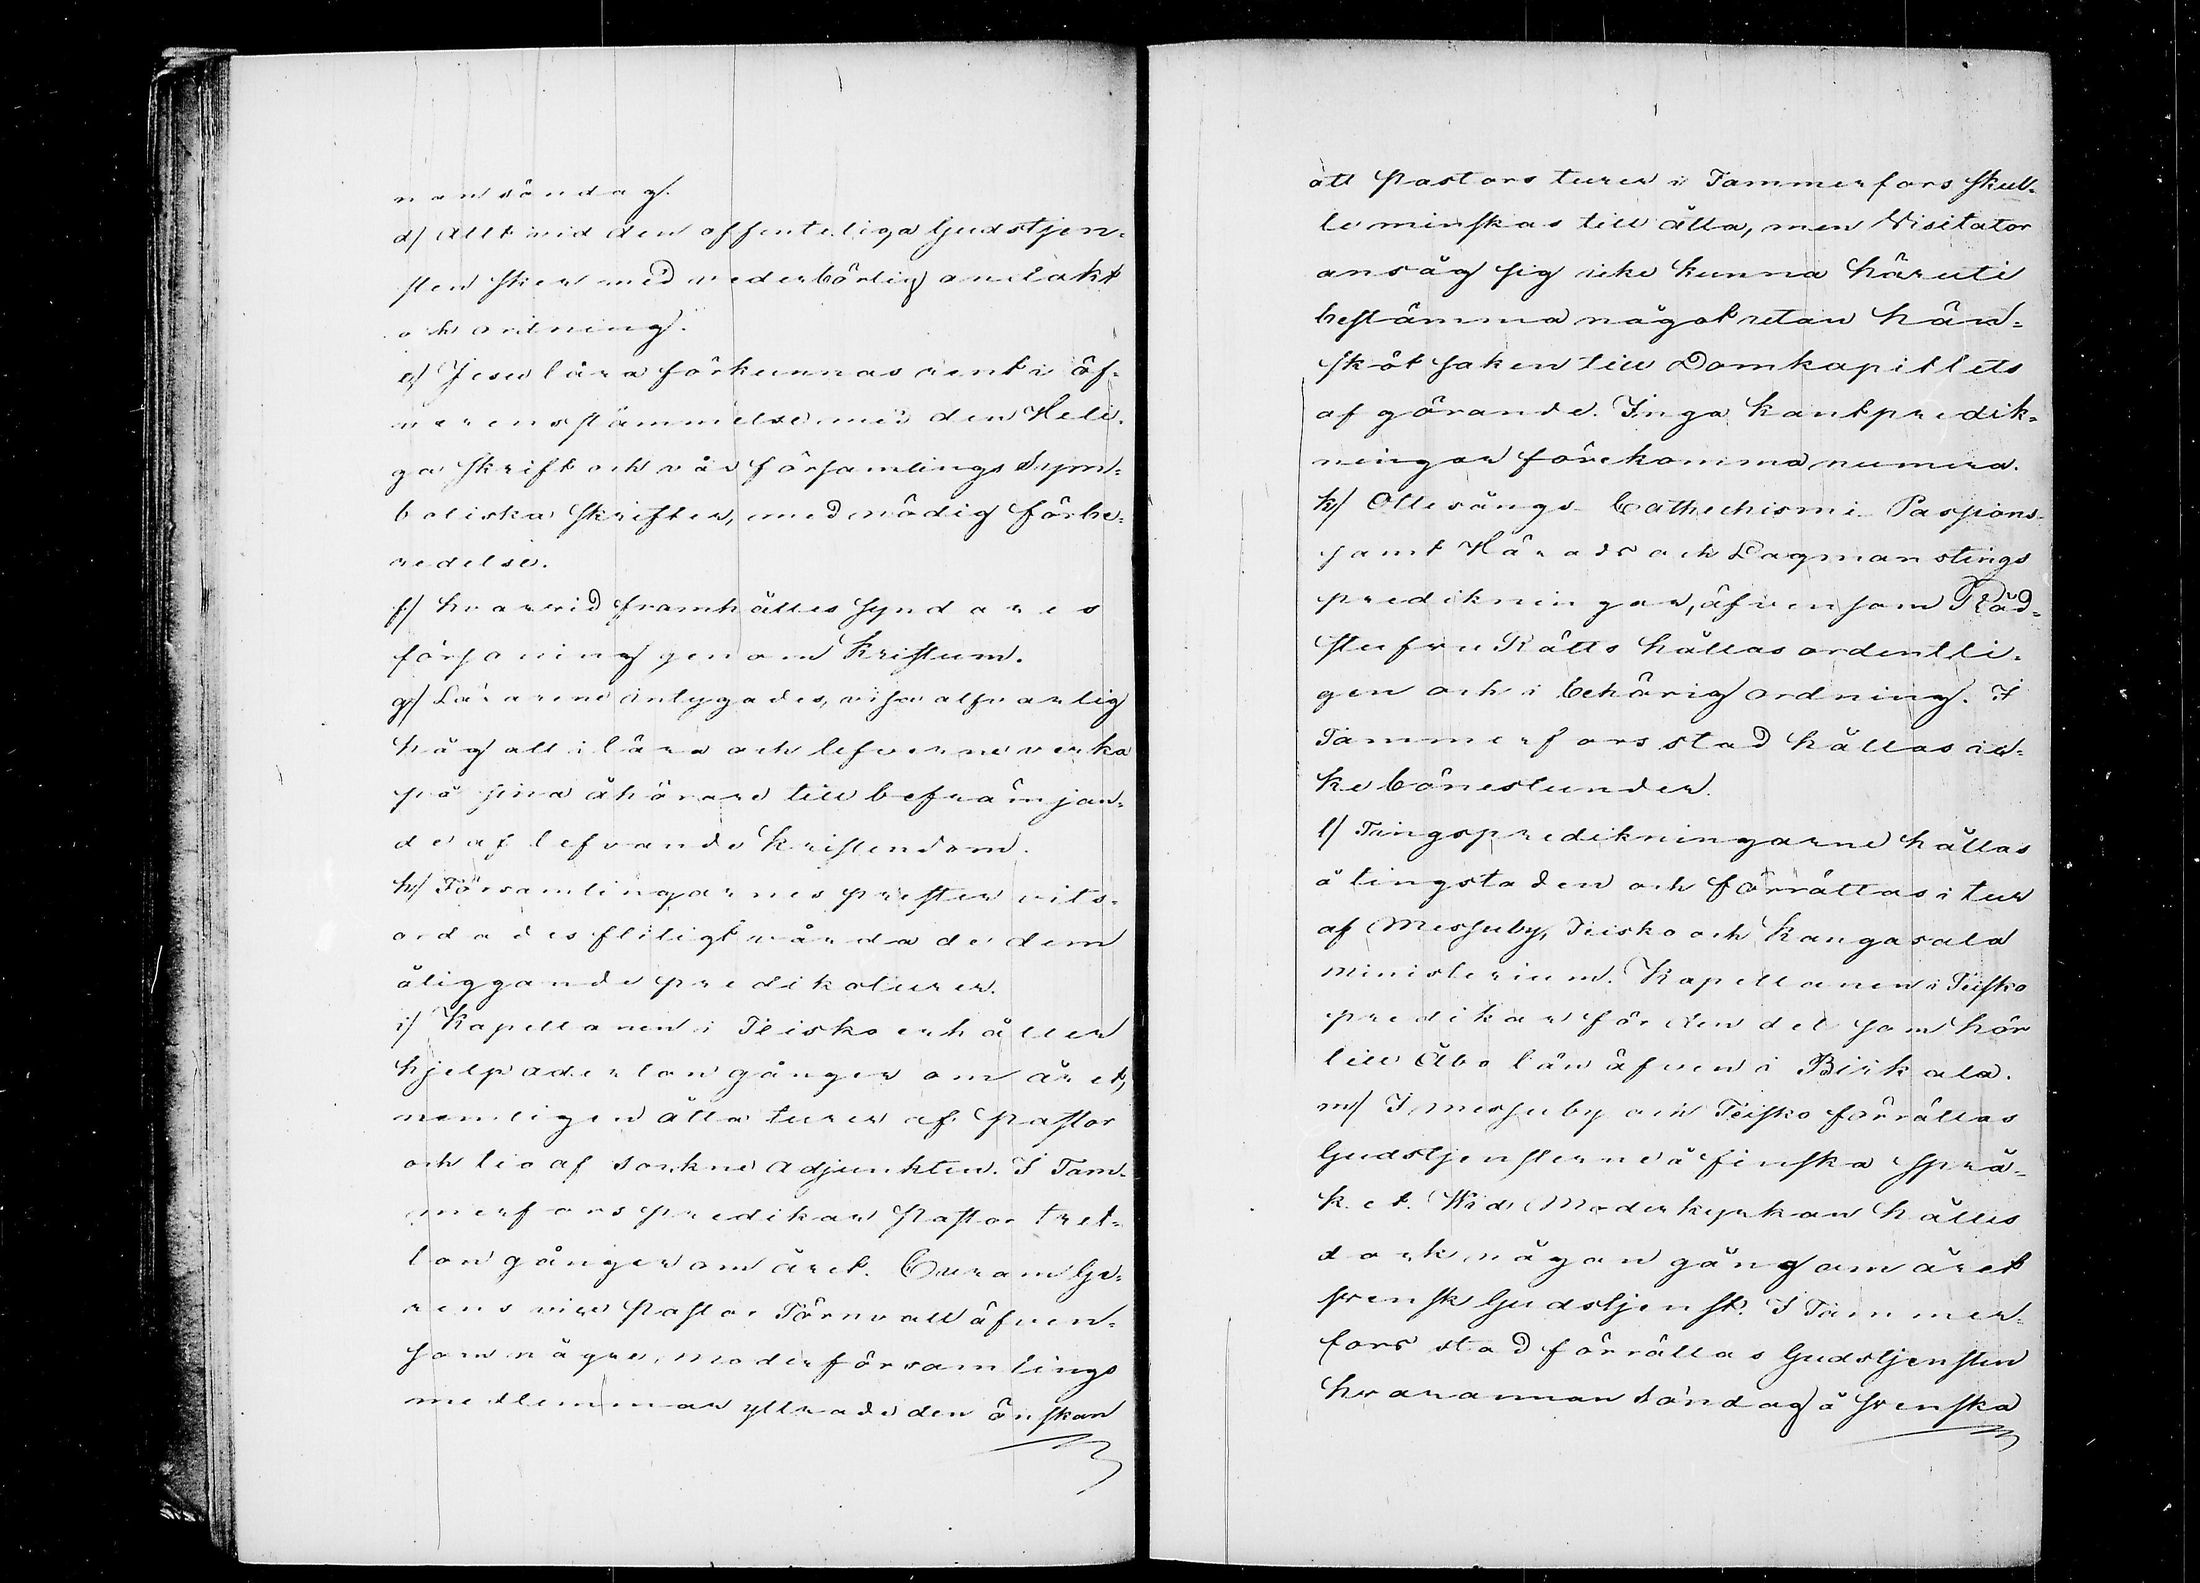 nan söndag.
d) Allt vid den offenteliga Gudstjen-
sten sker med vederbörlig andakt
och ordning.
e) Jesu lära förkunnas rent i öf-
verensstämmelse med den Heli-
ga skrift och vår församlings Sym-
boliska skrifter, med nödig förbe-
redelse.
f) hvarvid framhålles syndares
försoning genom Kristum.
g) Lärarene intygades, visa alfvarlig
håg att i lära och lefverne verka
på sina åhörare till befrämjan-
de af lefvande Kristendom.
h) Församlingarnes prester vits-
ordades flitigt vårda de dem
åliggande predikoturer.
i) Kapellanen i Teisko erhåller
hjelp aderton gånger om året,
nemligen åtta turer af Pastor
och tio af Sockne Adjunkten. I Tam-
merfors predikar Pastor tret-
ton gånger om året. Curam Ge-
rens vice Pastor Törnvall äfven-
som någre moderförsamlings
medlemmar yttrade den önskan
att Pastors turer i Tammerfors skul-
le minskas till åtta, men Visitator
ansåg sig icke kunna häruti
bestämma något utan hän-
sköt saken till Domkapitlets
afgörande. Inga kantpredik-
ningar förekomma numera.
k) Ottesångs- Cathechismi- Passions-
samt Härads och Lagmanstings
predikningar, äfvensom Råd-
stufvu Rätts hållas ordentli-
gen och i behörig ordning. I
Tammerfors stad hållas ic-
ke bönestunder.
l) Tingspredikningarne hållas
å tingstaden och förrättas i tur
af Messuby, Teisko och Kangasala
ministerium. Kapellanen i Teisko
predikar för den del som hör
till Åbo län äfven i Birkala.
m) I Messuby och Teisko förrättas
Gudstjensterne å finska språ-
ket. Wid Moderkyrkan hålles
dock någon gång om året
svensk Gudstjenst. I Tammer-
fors stad förrättas Gudstjensten
hvarannan Söndag å svenska